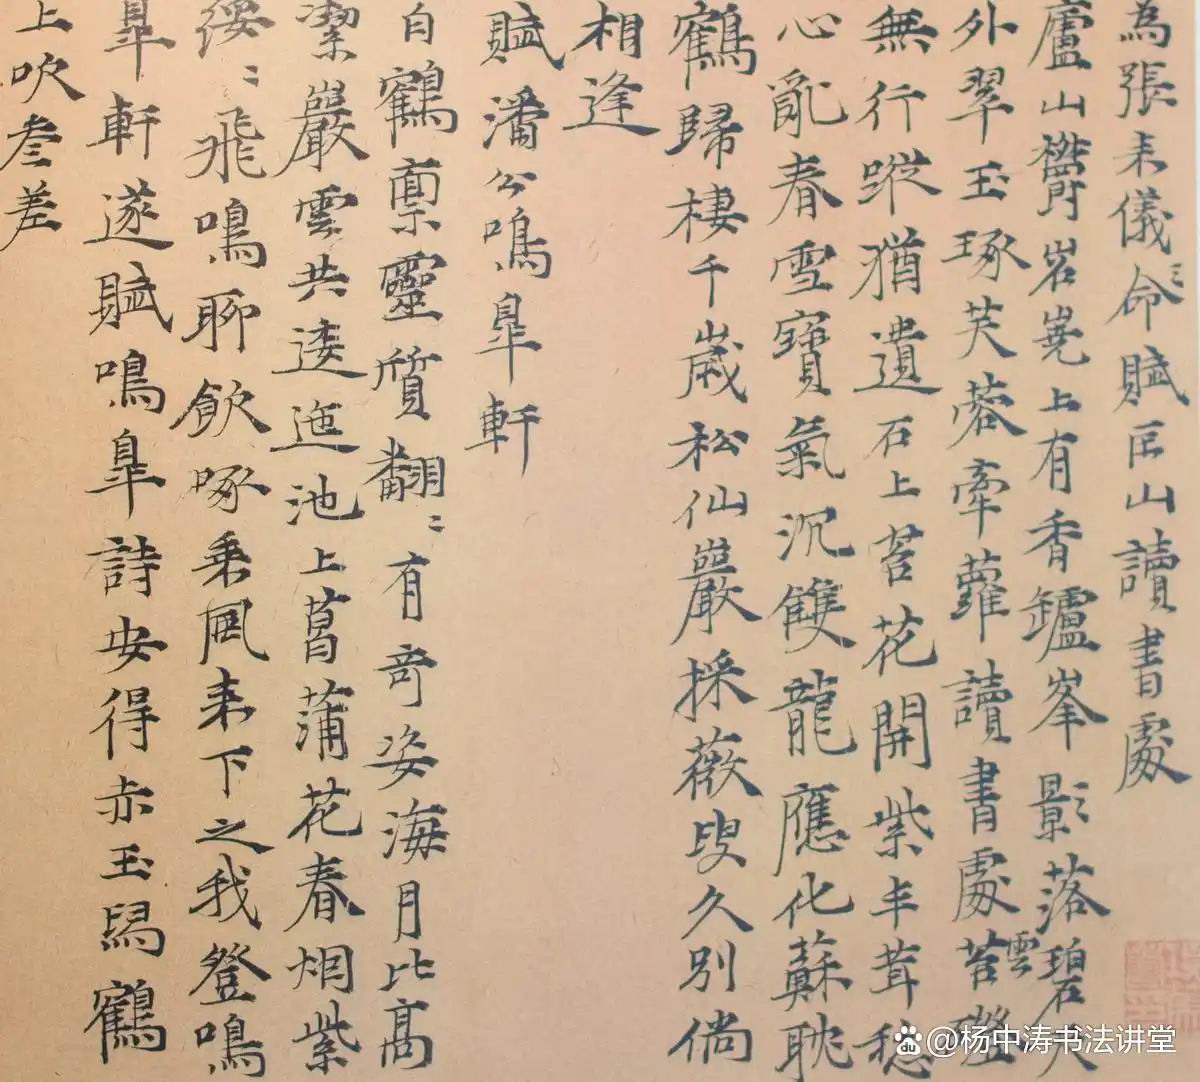 為張来儀命賦匡山讀書處
廬山欝岧嶤上有香罏峯影落碧天
外翠玉琢芙蓉牽蘿讀書處苔雲磴
無行蹤猶遺石上苔花開紫丰茸穏
心亂春雪寶氣沉雙龍應化蘇耽
鶴歸棲千歲松仙巖採薇叟久別倘
相逢
賦潘公鳴臯軒
白鶴稟靈質翻〻有奇姿海月比高
潔巖雲共逶迤池上菖蒲花春烟紫
綏〻飛鳴聊飲啄乘風来下之我登鳴
臯軒遂賦鳴臯詩安得赤玉舄鶴
上吹叁差
@杨中涛书法讲堂